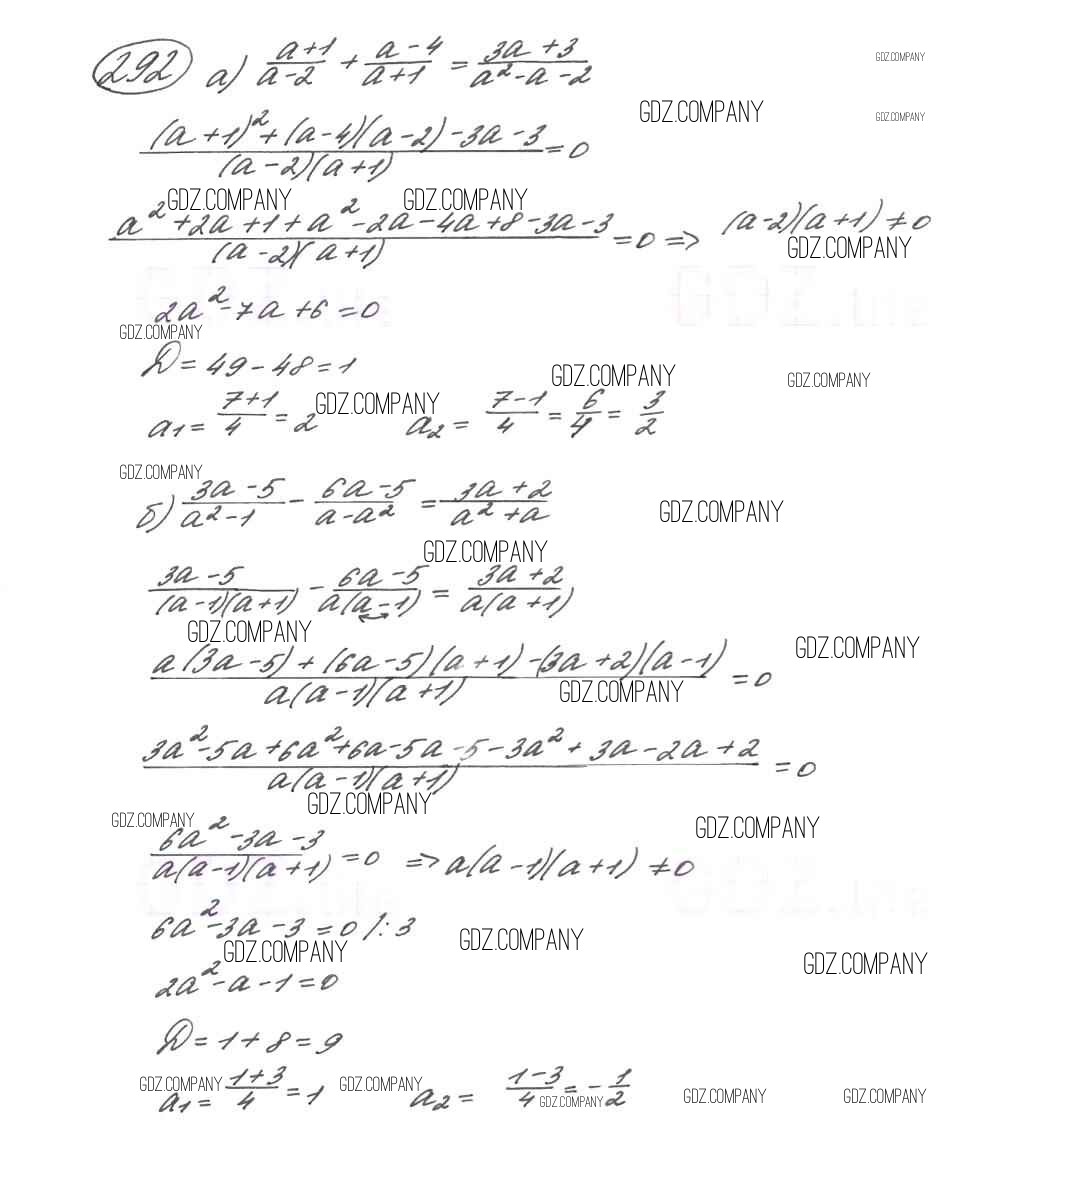 292 а) (a+1)/(a-2) + (a-4)/(a+1) = (3a+3)/(a²-a-2)
GDZ.COMPANY
GDZ.COMPANY
GDZ.COMPANY
((a+1)²+(a-4)(a-2)-3a-3)/((a-2)(a+1)) = 0
GDZ.COMPANY GDZ.COMPANY
(a²+2a+1+a²-2a-4a+8-3a-3)/((a-2)(a+1)) = 0 => (a-2)(a+1) ≠ 0
GDZ.COMPANY
2a²-7a+6=0
GDZ.COMPANY
D=49-48=1
GDZ.COMPANY GDZ.COMPANY
a₁ = (7+1)/4 = 2 GDZ.COMPANY a₂ = (7-1)/4 = 6/4 = 3/2
GDZ.COMPANY
б) (3a-5)/(a²-1) - (6a-5)/(a-a²) = (3a+2)/(a²+a)
GDZ.COMPANY
GDZ.COMPANY
(3a-5)/((a-1)(a+1)) - (6a-5)/(a(a-1)) = (3a+2)/(a(a+1))
GDZ.COMPANY
GDZ.COMPANY
(a(3a-5)+(6a-5)(a+1)-(3a+2)(a-1))/(a(a-1)(a+1)) = 0
GDZ.COMPANY
(3a²-5a+6a²+6a-5a-5-3a²+3a-2a+2)/(a(a-1)(a+1)) = 0
GDZ.COMPANY
GDZ.COMPANY GDZ.COMPANY
(6a²-3a-3)/(a(a-1)(a+1)) = 0 => a(a-1)(a+1) ≠ 0
6a²-3a-3=0 /:3
GDZ.COMPANY GDZ.COMPANY GDZ.COMPANY
2a²-a-1=0
D=1+8=9
GDZ.COMPANY GDZ.COMPANY GDZ.COMPANY GDZ.COMPANY GDZ.COMPANY
a₁ = (1+3)/4 = 1 a₂ = (1-3)/4 = -1/2